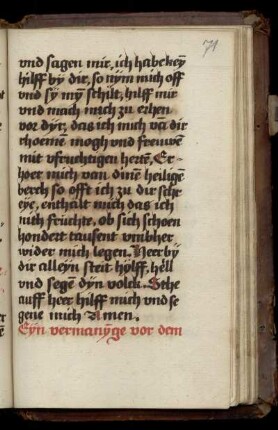 71
vnd sagen mir, ich habe keÿ
hilff bÿ dir, so nÿm mich off
vnd sÿ mÿ schilt, hilff mir
vnd mach mich zu erhen
vor dÿr, das ich mich vā dir
rhoeme mogh vnd freuwe
mit vfruchtigen hertē, Er-
hoer mich van dinē heiligē
berch so offt ich zu dir schr
eye, enthalt mich das ich
nith fruchte, ob sich schoen
hondert tausent vmbher
wider mich legen. Heer bÿ
dir alleÿn steit hÿlff, hēll
vnd segē dÿn volck. Stehe
auff heer hilff mich vnd se
gene mich Amen.
Eÿn vermanÿge vor dem